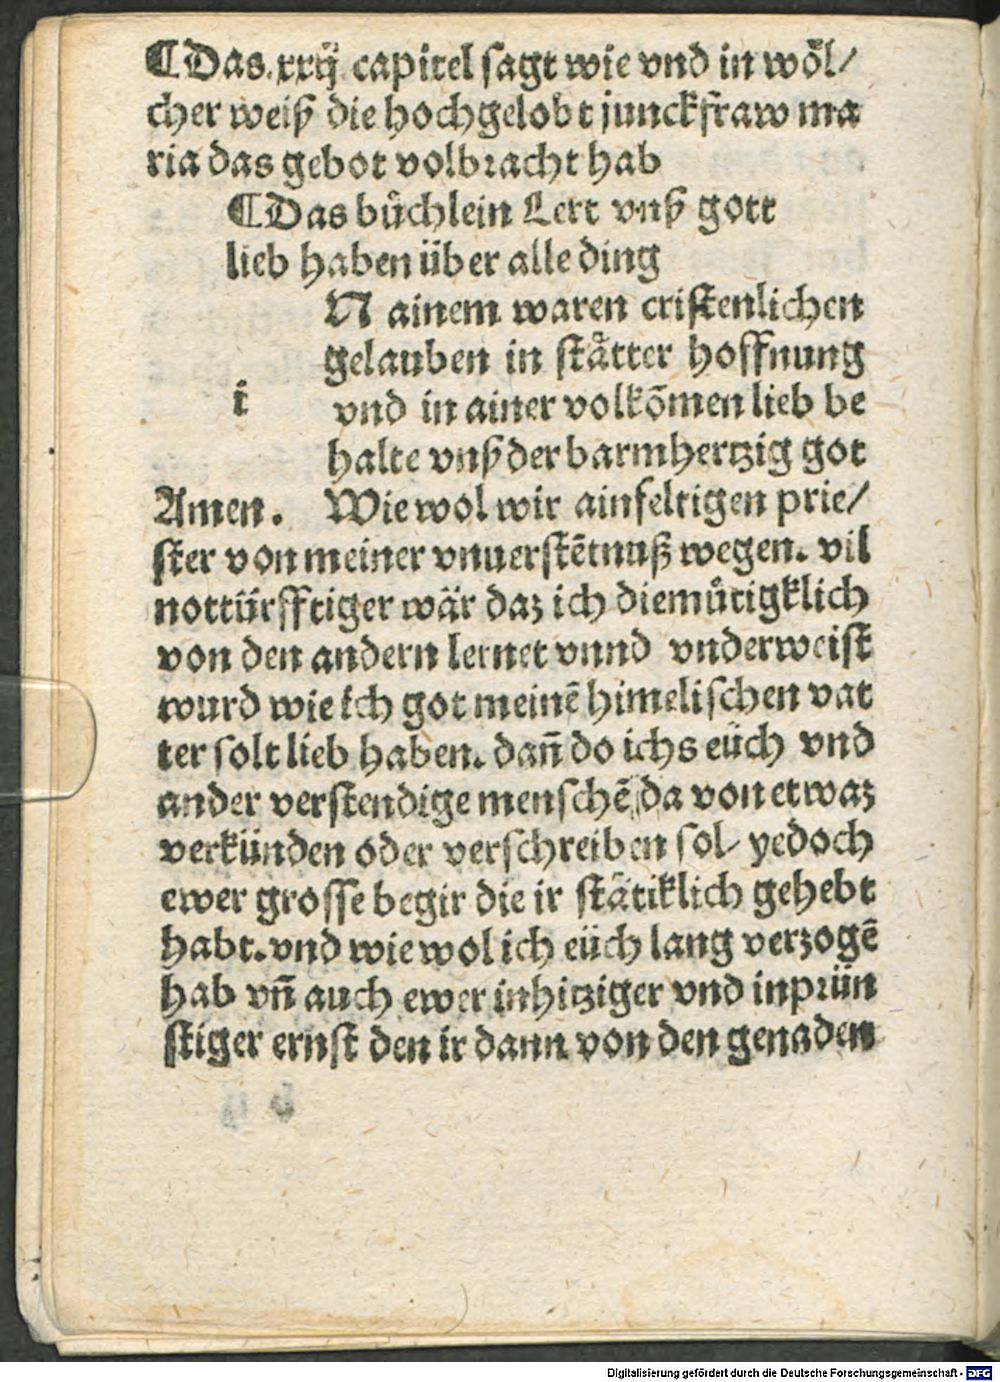 ¶Das .xxij capitel sagt wie vnd in wöl/
cher weiß die hochgelobt junckfraw ma
ria das gebot volbracht hab
¶Das bůchlein Lert vnß gott
lieb haben über alle ding
N ainem waren cristenlichen
gelauben in stätter hoffnung
i vnd in ainer volkõmen lieb be
halte vnß der barmhertzig got
Amen. Wie wol wir ainfeltigen prie/
ster von meiner vnuerstẽtnuß wegen. vil
nottürfftiger wär daz ich diemůtigklich
von den andern lernet vnnd vnderweist
wurd wie ich got meinẽ himelischen vat
ter solt lieb haben. dañ do ichs eüch vnd
ander verstendige menschẽ da von etwaz
verkünden oder verschreiben sol/ yedoch
ewer grosse begir die ir stätiklich gehebt
habt. vnd wie wol ich eüch lang verzogẽ
hab vñ auch ewer inhitziger vnd inprün
stiger ernst den ir dann von den genaden
Digitalisierung gefördert durch die Deutsche Forschungsgemeinschaft - DFG